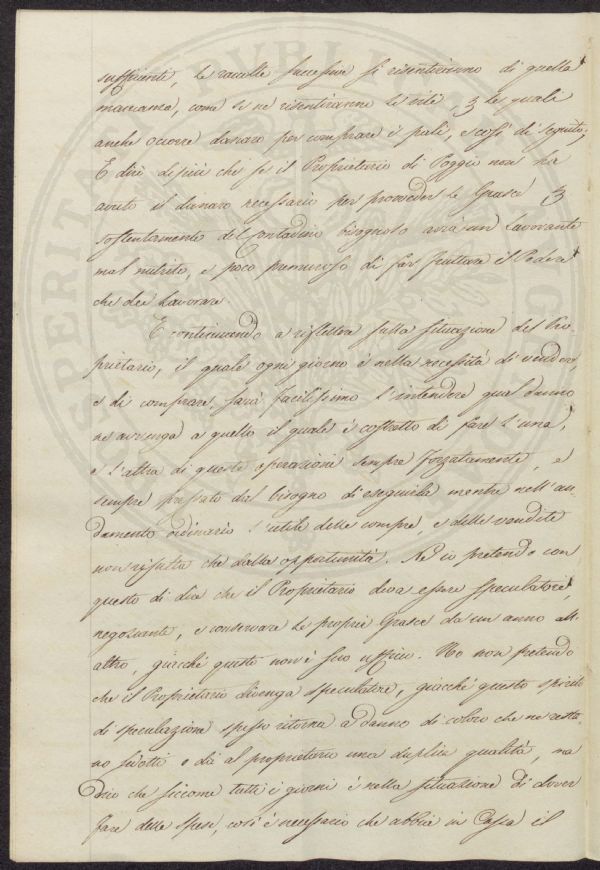 sufficienti, le raccolte successive si risentiranno di quella
mancanza, come se ne risentiranno le viti, p le quali
anche occorre danaro per comprare i pali, e così di seguito;
E dirò di più che se il Proprietario di Poggio non ha
avuto il danaro necessario per provvedere le Grasce p
sostentamento del Contadino bisognoso avrà un Lavorante
mal nutrito, e poco premuroso di far fruttare il Podere
che dee Lavorare.
E continuando a riflettere sulla situazione del Pro-
prietario, il quale ogni giorno è nella necessità di vendere,
e di comprare, sarà facilissimo l'intendere qual danno
ne avvenga a quello il quale è costretto di fare l'una,
e l'altra di queste operazioni sempre forzatamente, e
sempre pressato dal bisogno di eseguirla mentre nell'an-
damento ordinario l'utile delle compre e delle vendite
non risulta che dalla opportunità. Nè io pretendo con
questo di dire che il Proprietario deva essere speculatore,
negoziante, e conservare le proprie Grasce da un anno all'
altro, giacchè questo non è suo uffizio. No non pretendo
che il Proprietario divenga speculatore, giacchè questo spirito
di speculazione spesso ritorna a danno di coloro che ne resta-
no sedotti e dà al proprietario una duplice qualità, ma
dico che siccome tutti i giorni è nella situazione di dover
fare delle spese, così è necessario che abbia in Cassa il